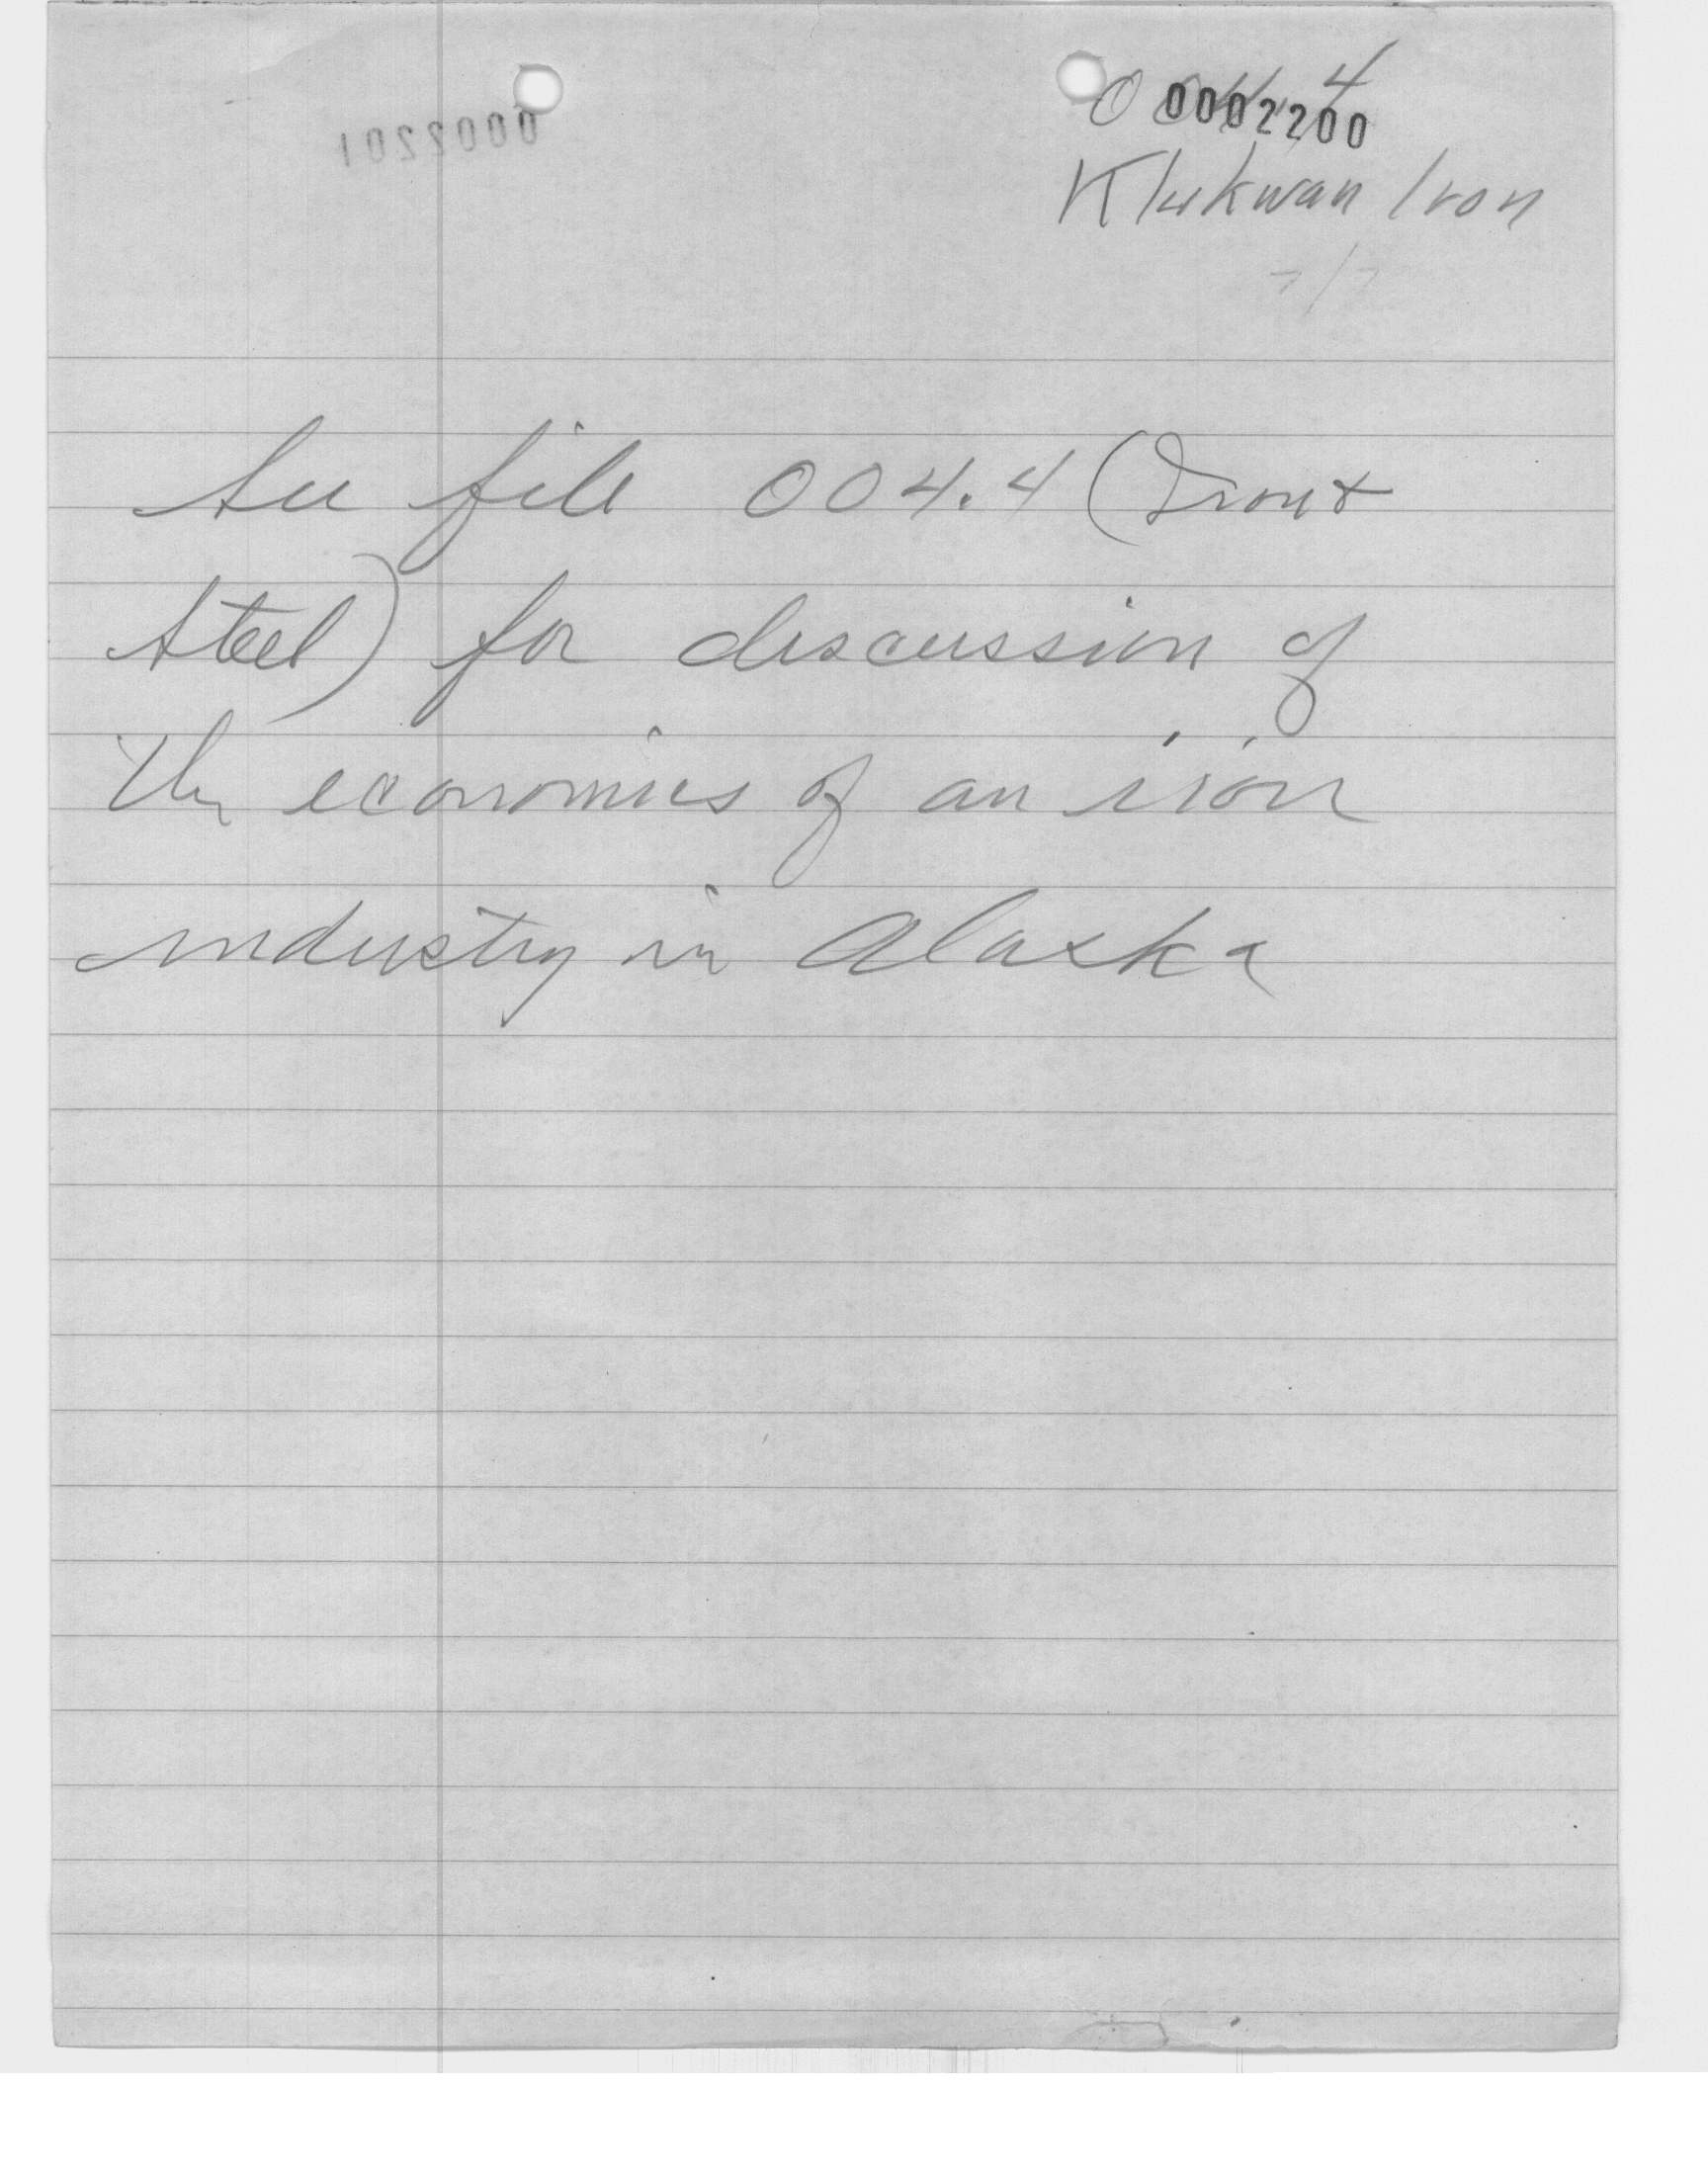 004.4
0002200
0002201
Klukwan Iron
See file 004.4 (Iron &
Steel) for discussion of
the economics of an iron
industry in Alaska